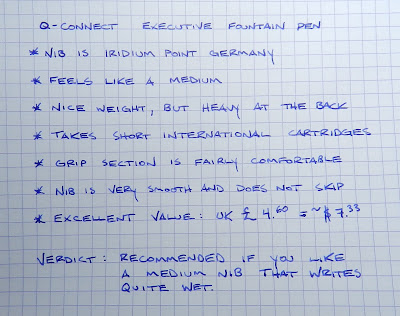 Q-CONNECT EXECUTIVE FOUNTAIN PEN
* NIB IS IRIDIUM POINT GERMANY
* FEELS LIKE A MEDIUM
* NICE WEIGHT, BUT HEAVY AT THE BACK
* TAKES SHORT INTERNATIONAL CARTRIDGES
* GRIP SECTION IS FAIRLY COMFORTABLE
* NIB IS VERY SMOOTH AND DOES NOT SKIP
* EXCELLENT VALUE: UK £ 4.60 = ~$7.33
VERDICT: RECOMMENDED IF YOU LIKE
A MEDIUM NIB THAT WRITES
QUITE WET.